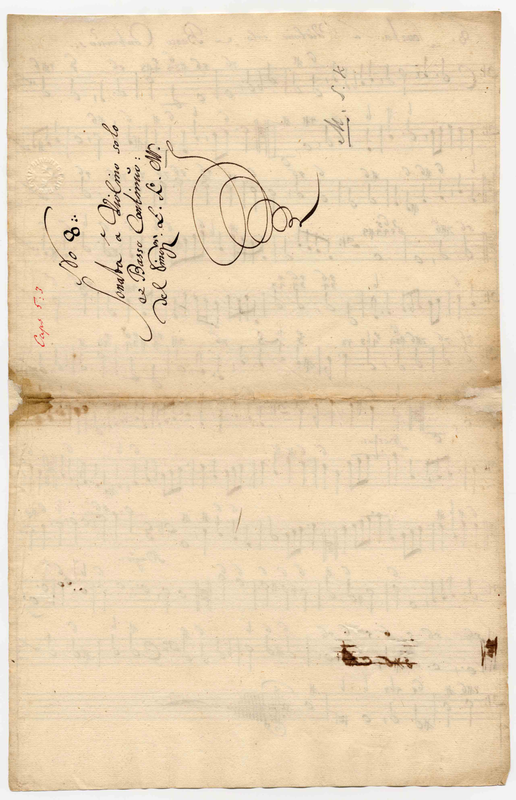 No 8:
Sonata à Violino solo
è Basso Continuo:
del Sigre: L. L. W.
M. S. K
Caps 5:3